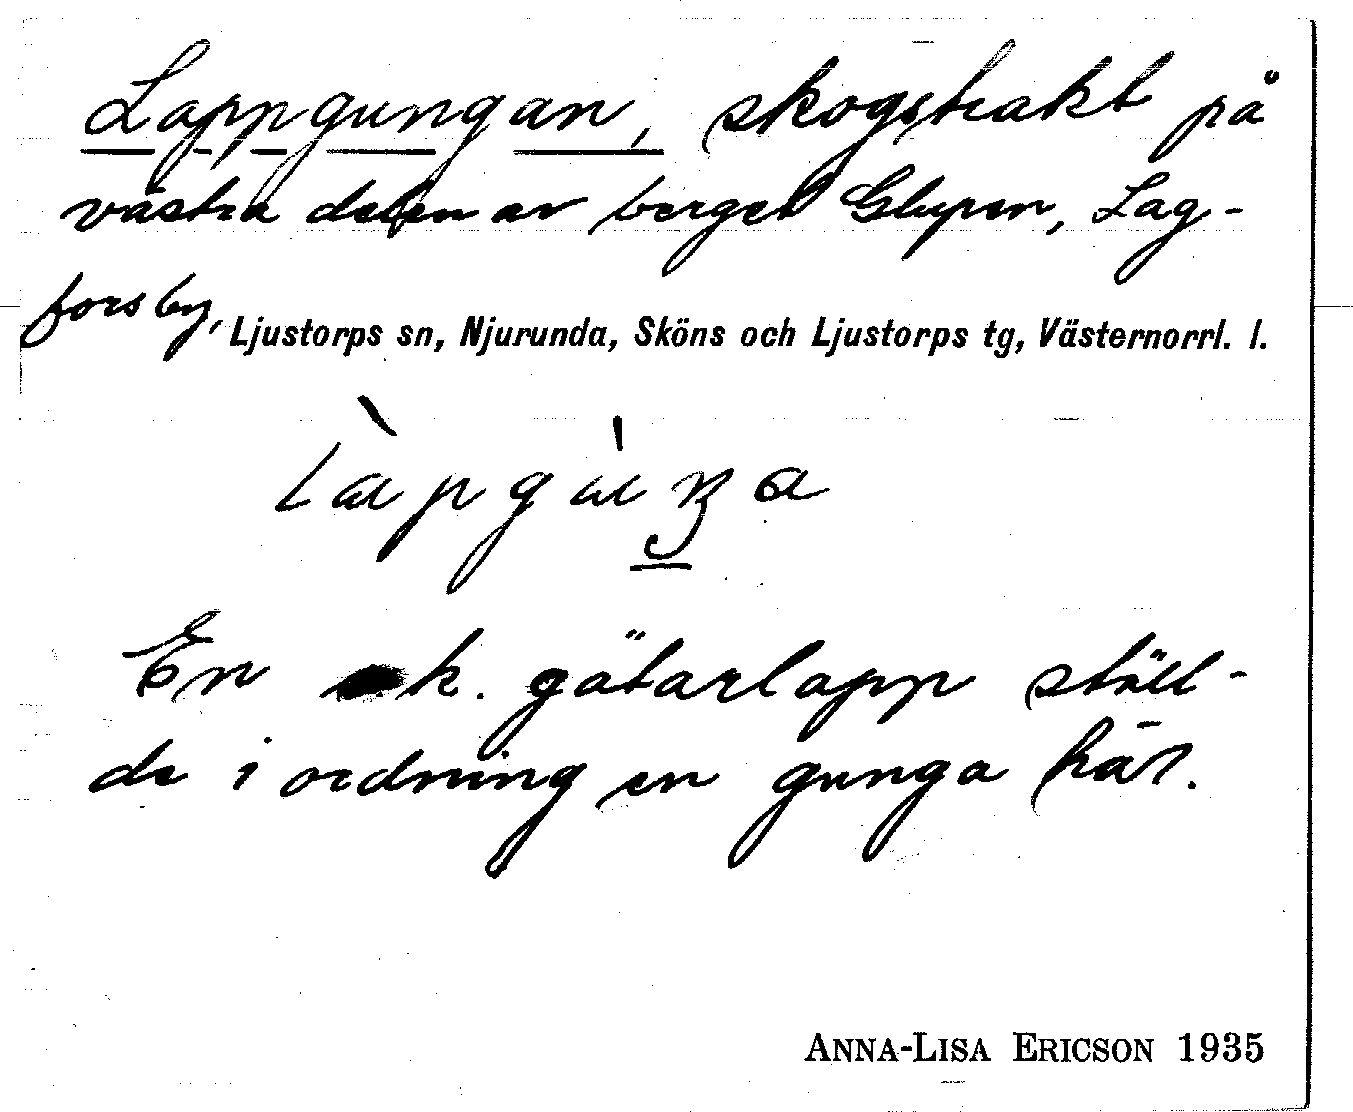 Lappgungan, skogstrakt på
västra delen av berget Glupen, Lag-
fors by, Ljustorps sn, Njurunda, Sköns och Ljustorps tg, Västernorrl. l.
làpgùŋa
En s.k. gätarlapp ställ-
de i ordning en gunga här.
ANNA-LISA ERICSON 1935